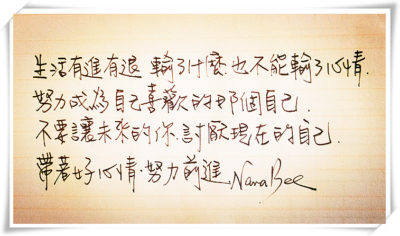 生活有進有退 輸了什麼也不能輸了心情.
努力成為自己喜歡的那個自己.
不要讓未來的你.討厭現在的自己.
帶著好心情.努力前進. Nana Bee